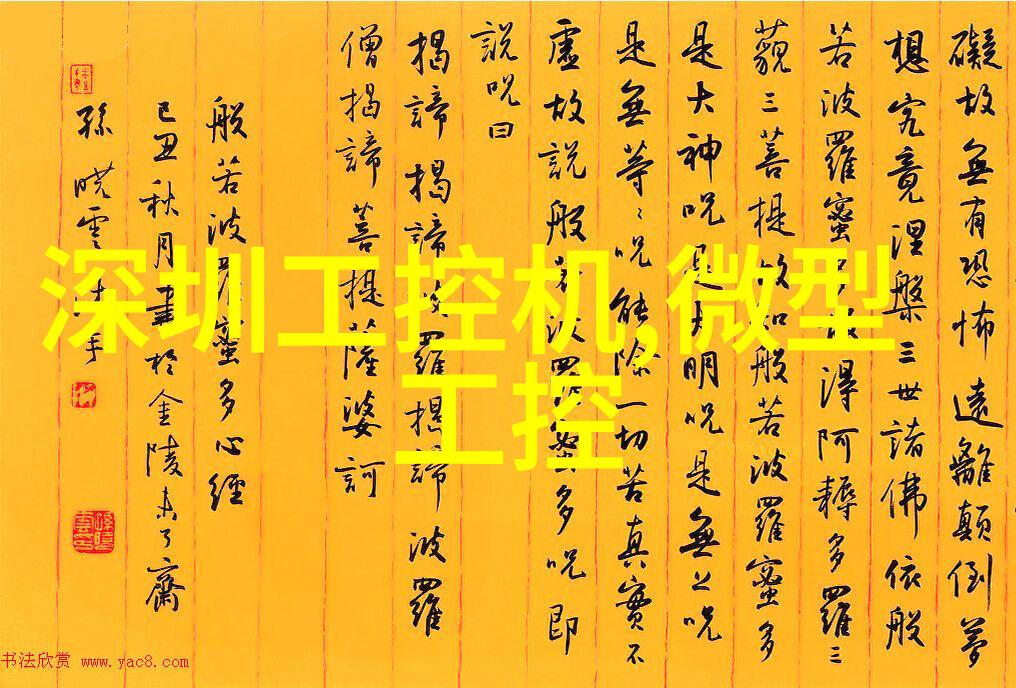 礙故無有恐怖遠離顛倒夢
想究竟涅槃三世諸佛依般
若波羅蜜多故得阿耨多羅三
藐三菩提故知般若波羅蜜多
是大神呪是大明呪是無上呪
是無等〻呪能除一切苦真實不
虛故說般若波羅蜜多呪即
說呪曰
揭諦揭諦波羅揭諦波羅
僧揭諦菩提薩婆訶
般若波羅蜜多心經
己丑秋月書於金陵未了齋
孫曉雲沐手
深圳工控机,微型
工控
书法欣赏 www.yac8.com